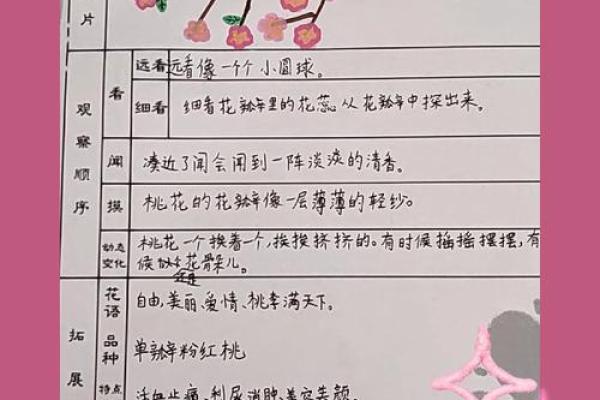 片
观察顺序
看
远看
远看像一个个小圆球。
细看
细看花瓣里的花蕊从花瓣中探出来。
闻
凑近了闻会闻到一阵淡淡的清香。
摸
桃花的花瓣像一层薄薄的轻纱。
动态变化
桃花一个挨着一个,挨挨挤挤的。有时候摇摇摆摆,有
候 还是花骨朵儿。
拓展
花语
自由,美丽、爱情、桃李满天下。
品种
单瓣粉红桃
特点
活血止痛、利尿消肿、美容养颜。